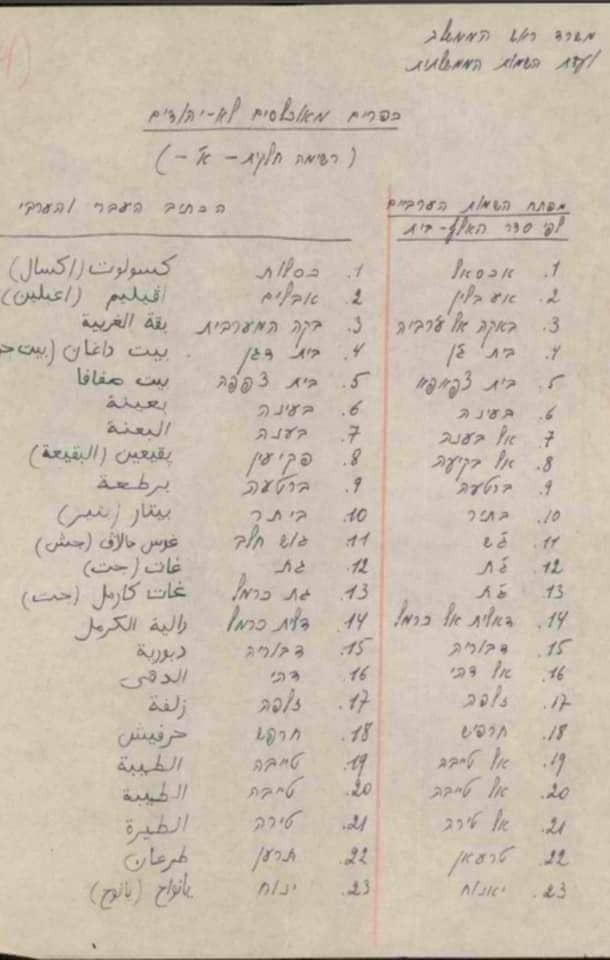 משרד ראש הממשלה
ועדת השמות הממשלתית
כפרים מאוכלסים לא-יהודים
(רשימה חלקית - א' -)
מפתח השמות הערביים
לפי סדר האלף-בית
הכתיב העברי והערבי
1. אכסאל 1. כסלות كسولوت (اكسال)
2. אעבלין 2. אבלים افيليم (اعبلين)
3. באקה אל ע'רביה 3. בקה המערבית بقة الغربية
4. בית ג'ן 4. בית דגן بيت داغان (بيت
5. בית צפאפא 5. בית צפפה بيت صفافا
6. בעינה 6. בעינה بعينة
7. אל בענה 7. בענה البعنة
8. אל בקיעה 8. פקיעין بقيعين (البقيعة)
9. ברטעה 9. ברטעה برطعة
10. בתיר 10. ביתר بيتار (بتير)
11. ג'ש 11. גוש חלב غوس حالاف (جش)
12. ג'ת 12. גת غات (جت)
13. ג'ת 13. גת כרמל غات كارمل (جت)
14. דאלית אל כרמל 14. דלית כרמל دالية الكرمل
15. דבוריה 15. דבוריה دبورية
16. אל דחי 16. דחי الدحى
17. זלפה 17. זלפה زلفة
18. חרפיש 18. חרפש حرفيش
19. אל טייבה 19. טייבה الطيبة
20. אל טייבה 20. טייבה الطيبة
21. אל טירה 21. טירה الطيرة
22. טרעאן 22. תרען طرعان
23. יאנוח 23. ינוח يانواح (يانوح)